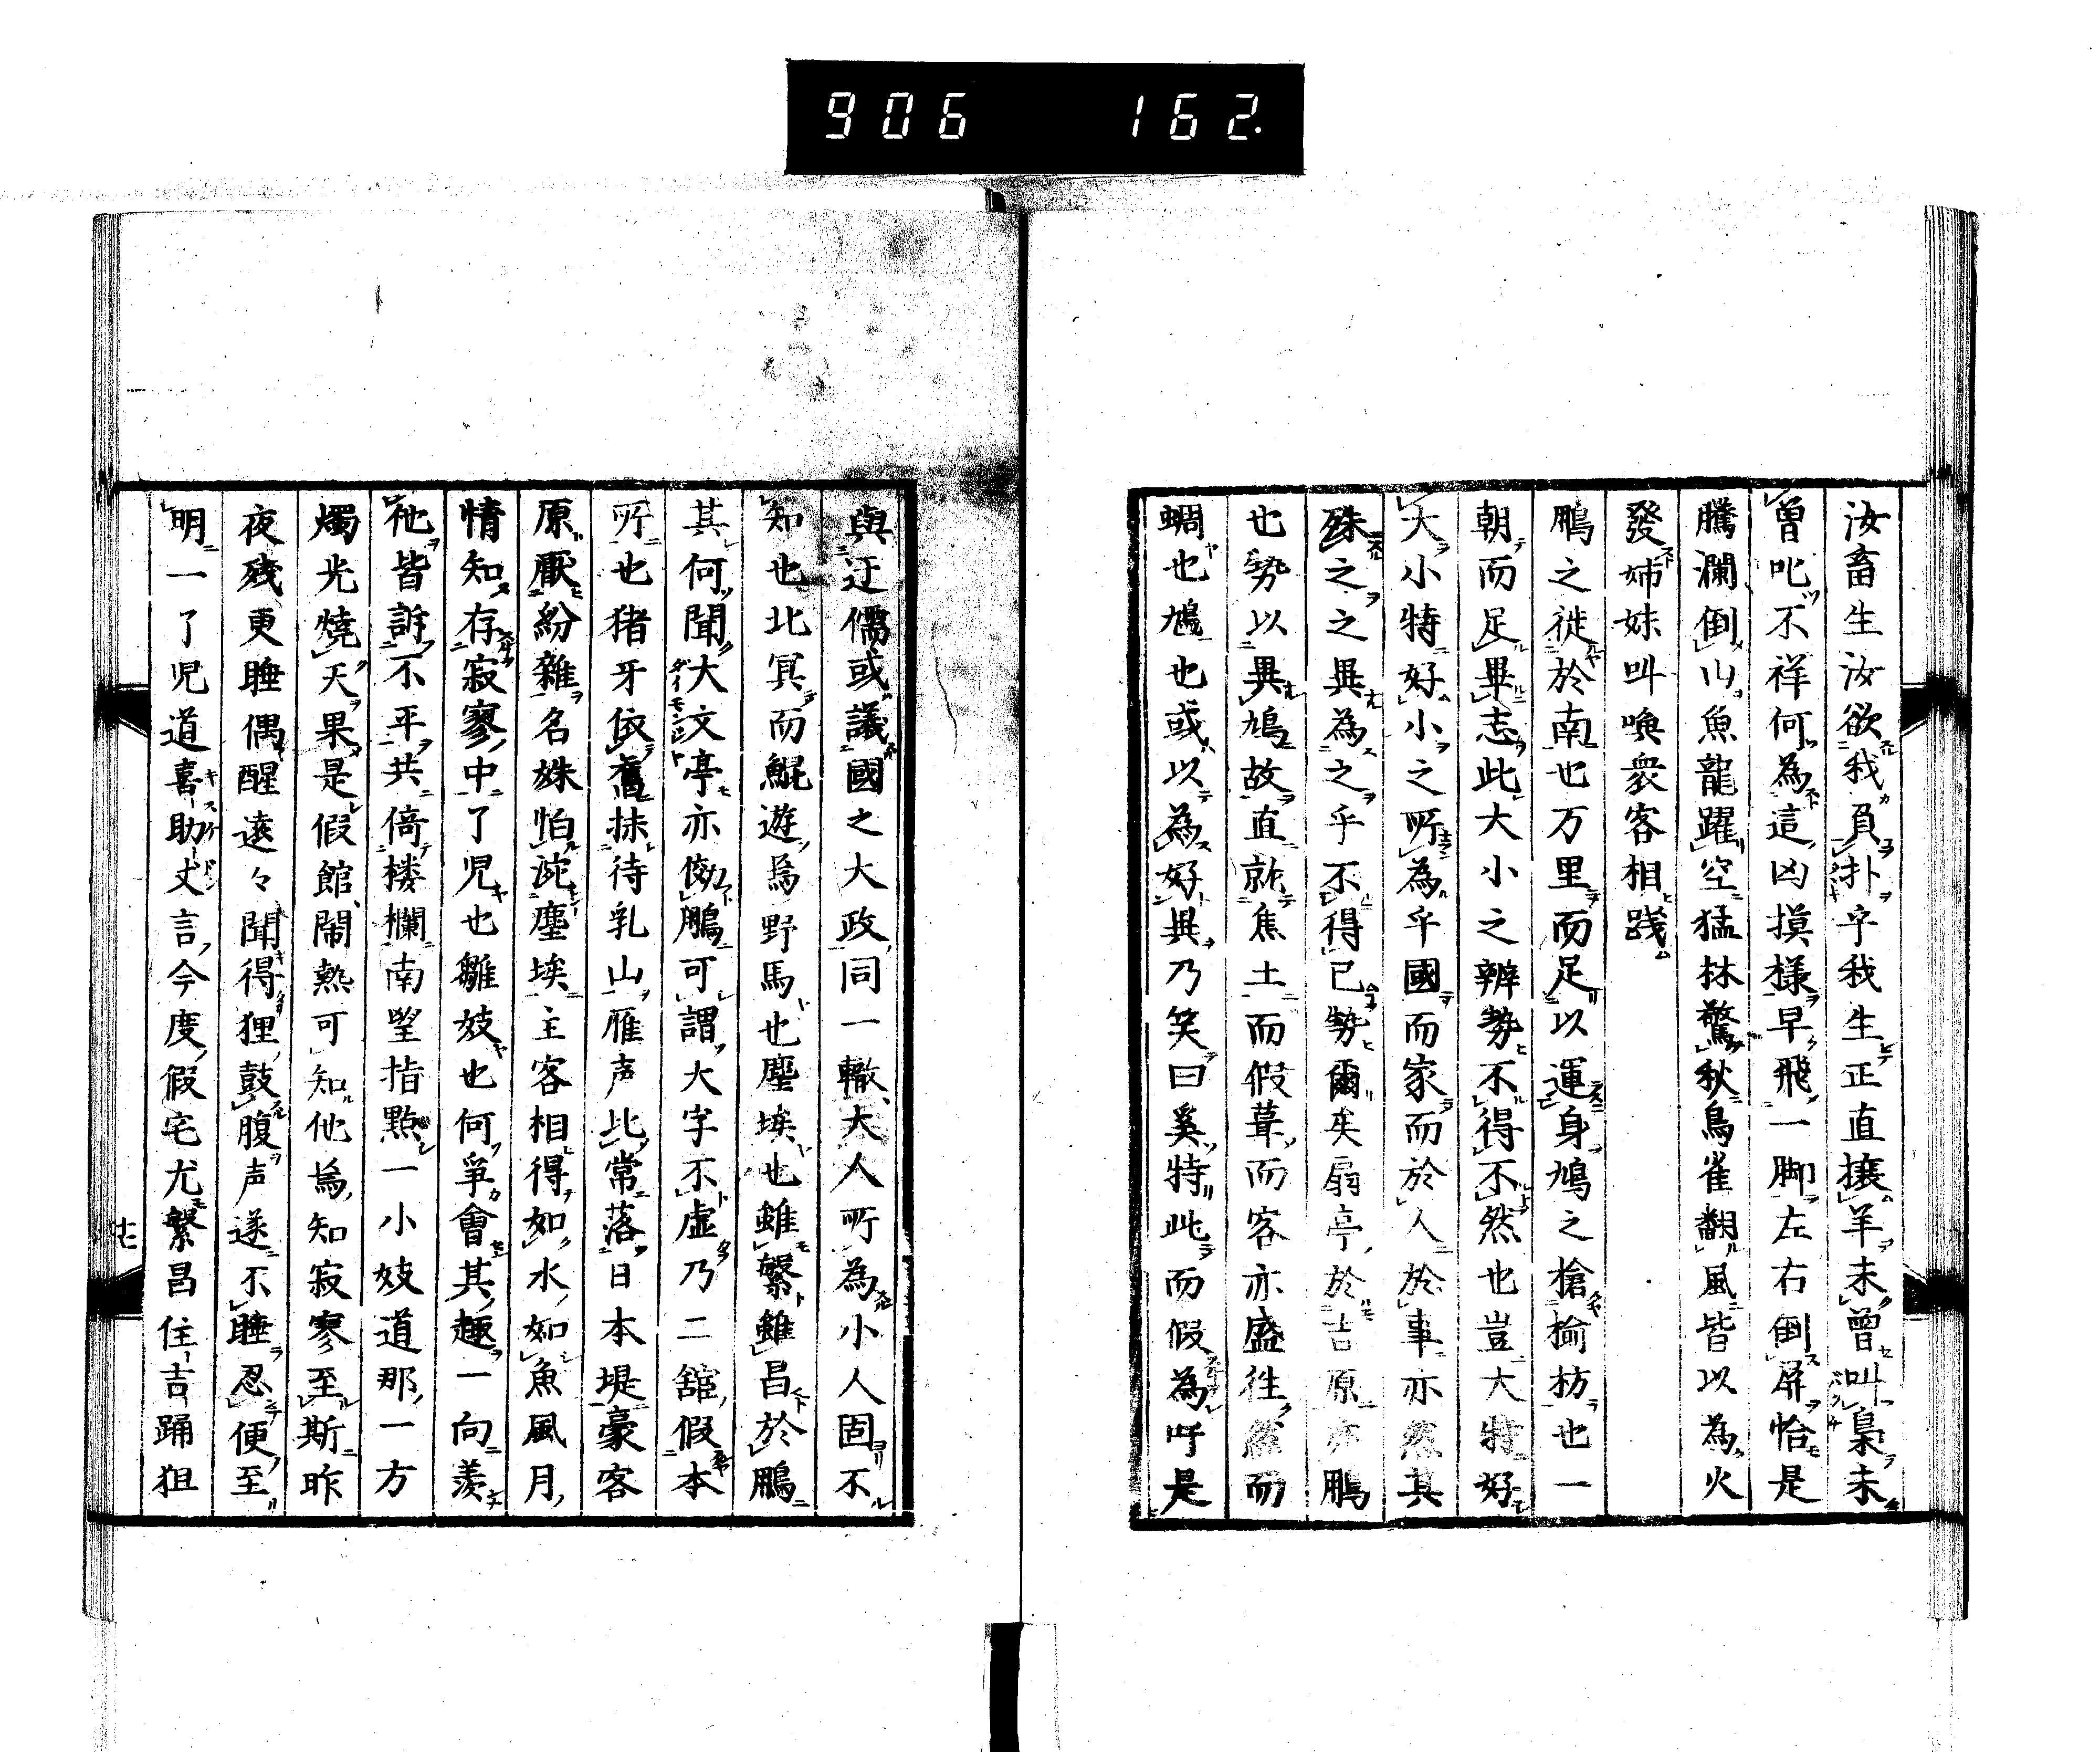 906 162.
汝畜生汝欲我負扑乎我生正直攘羊未曾叫梟未
曾叱不祥何為這凶摸様早飛一脚左右倒屏恰是
騰瀾倒山魚龍躍空猛林驚秋鳥雀翻風皆以為火
發姉妹叫喚衆客相踐
鵬之徙於南也万里而足以運身鳩之槍揄枋也一
朝而足畢志此大小之辨勢不得不然也豈大特好
大小特好小之所為乎國而家而於人於事亦然其
殊之之異為之乎不得已勢爾矣扇亭於吉原亦鵬
也勢以異鳩故直就焦土而假葺而客亦盛徃然而
蜩也鳩也或以為好異乃笑曰奚特此而假為吁是
與迂儒或議國之大政同一轍大人所為小人固不
知也北冥而鯤遊焉野馬也塵埃也雖繁雖昌於鵬
其何聞大文亭亦倣鵬可謂大字不虚乃二舘假本
所也猪牙依舊抹待乳山雁声比常落日本堤豪客
原厭紛雜名姝怕涴塵埃主客相得如水如魚風月
情知存寂寥中了児也雛妓也何爭會其趣一向羨
他皆訴不平共倚楼欄南望指點一小妓道那一方
燭光燒天果是假館閙熱可知他焉知寂寥至斯昨
夜残更睡偶醒遠々聞得狸鼓腹声遂不睡忍便至
明一了児道喜助丈言今度假宅尤繁昌住吉踊狙